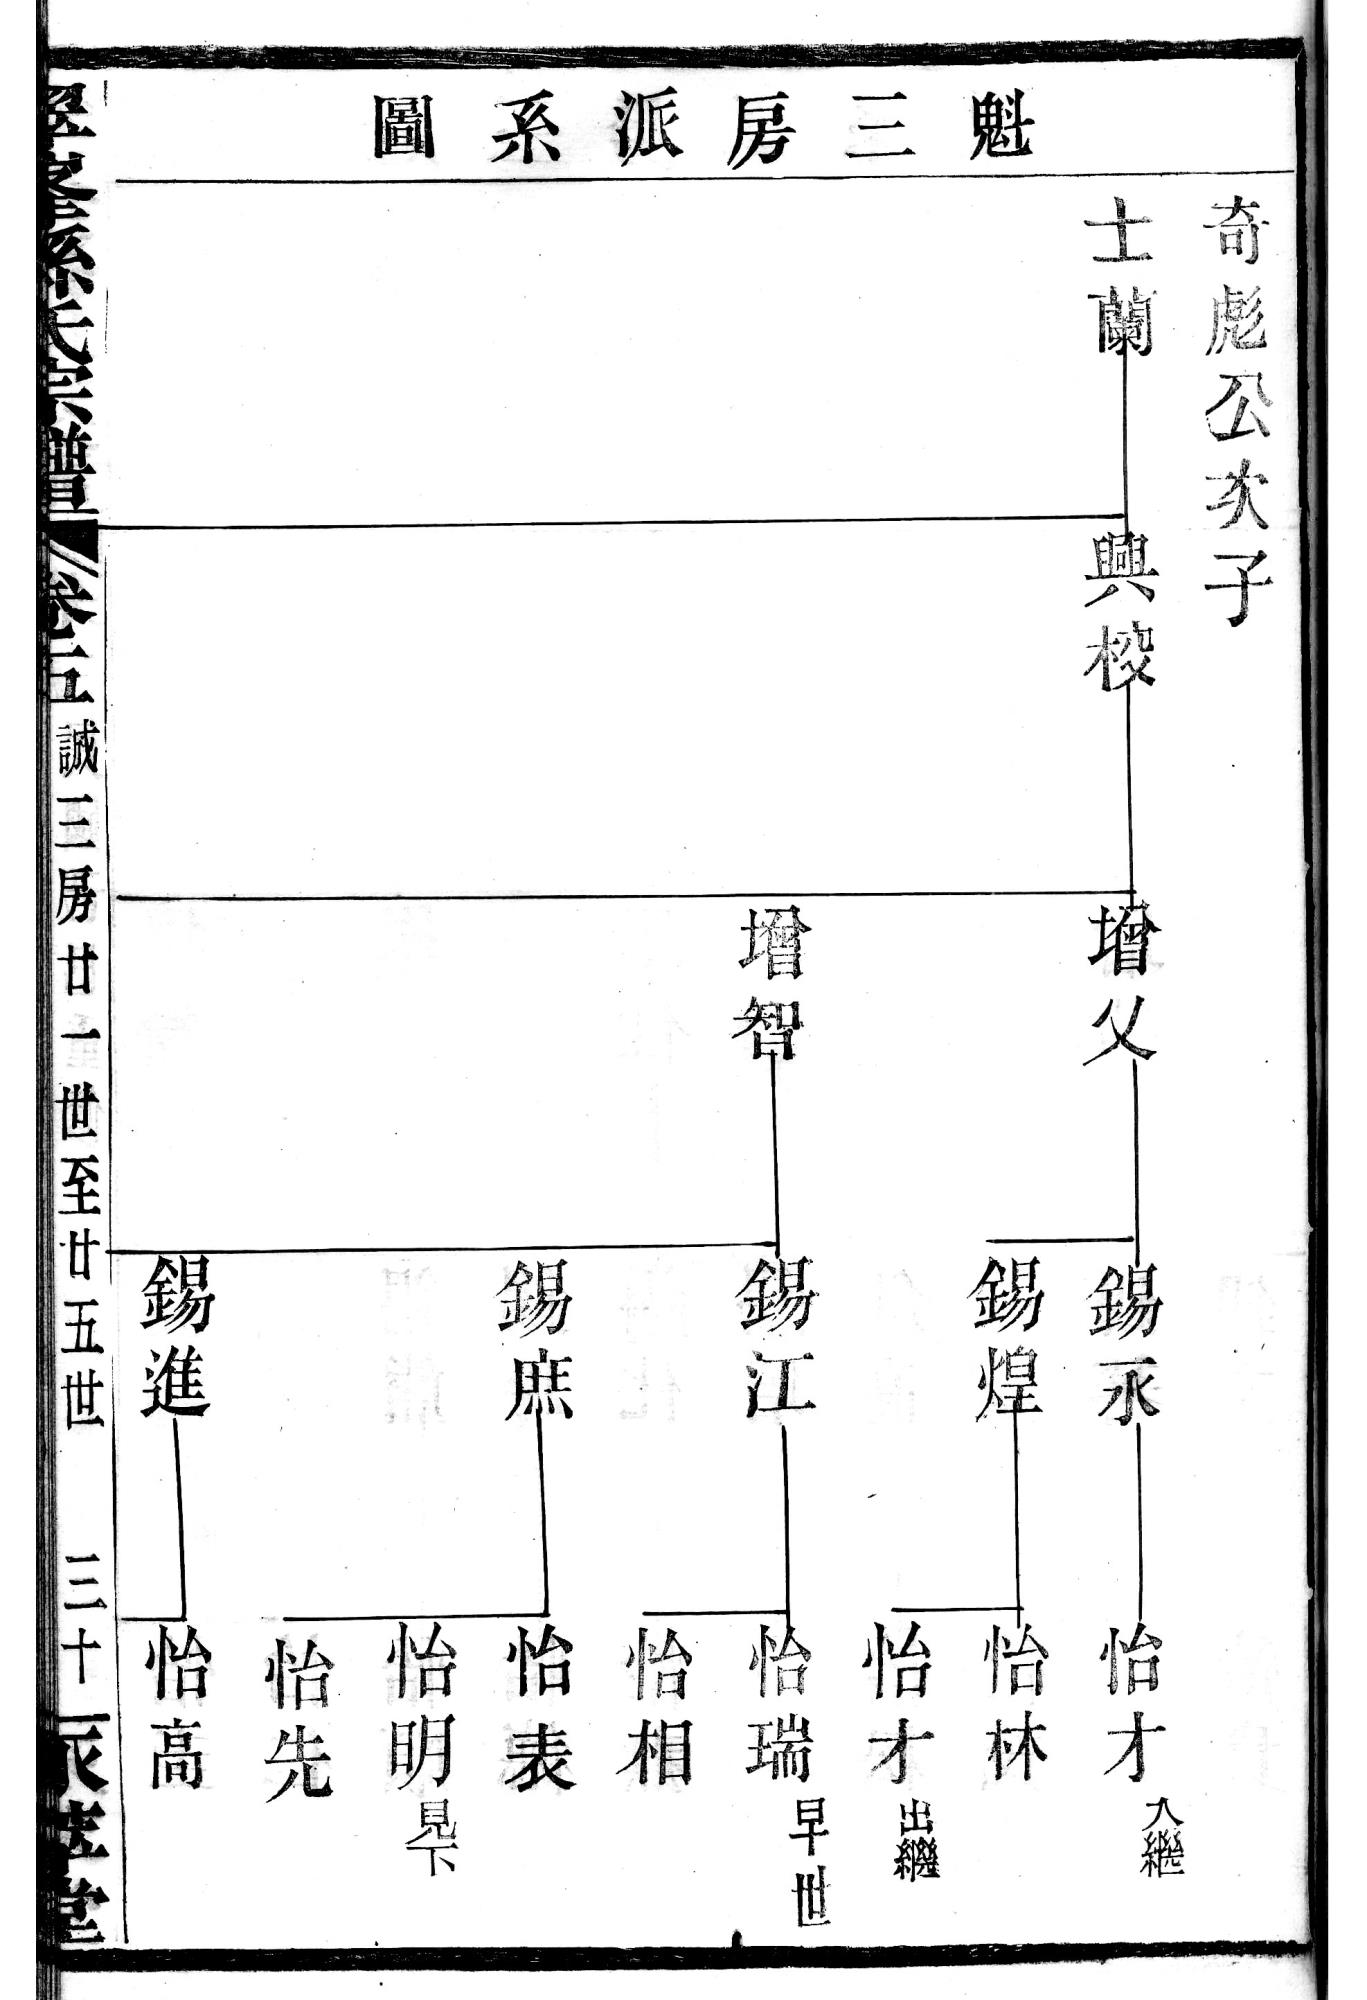 魁三房派系圖
奇彪公次子
士蘭
興校
增父
增智
錫永
錫煌
錫江
錫庶
錫進
怡才 入繼
怡林
怡才 出繼
怡瑞 早世
怡相
怡表
怡明 見下
怡先
怡高
孫氏宗譜 卷五 誠三房廿一世至廿五世 三十一 堂